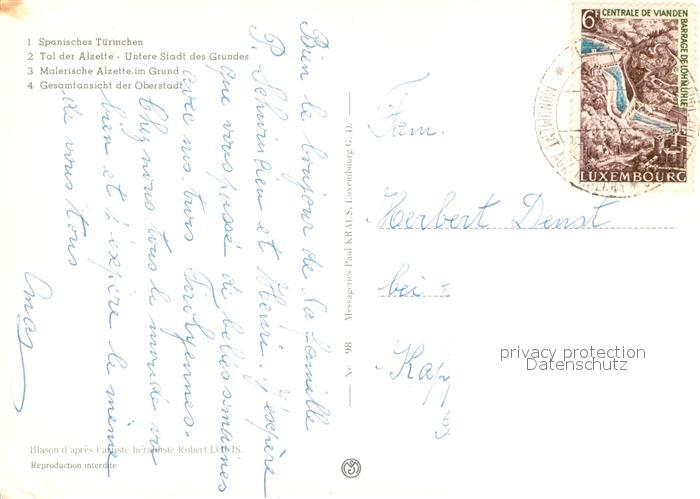 1 Spanisches Türmchen
2 Tal der Alzette - Untere Stadt des Grundes
3 Malerische Alzette im Grund
4 Gesamtansicht der Oberstadt
Bien le bonjour de la famille
P. Schwindien et Henri. J'espère
que vous passé de belles semaines
avec nos turs Tirolyennes.
Chez nous tous le monde va
bien et j'espère le même
de vous tous
Blason d'après l'artiste héraldiste Robert LOUIS.
Reproduction interdite
No 98 Messageries Paul KRAUS, Luxembourg G. D.
6F CENTRALE DE VIANDEN
BARRAGE DE LOHMUHLE
LUXEMBOURG
MONUMENT
Fam.
Herbert Denst
bei
Kapp
privacy protection
Datenschutz